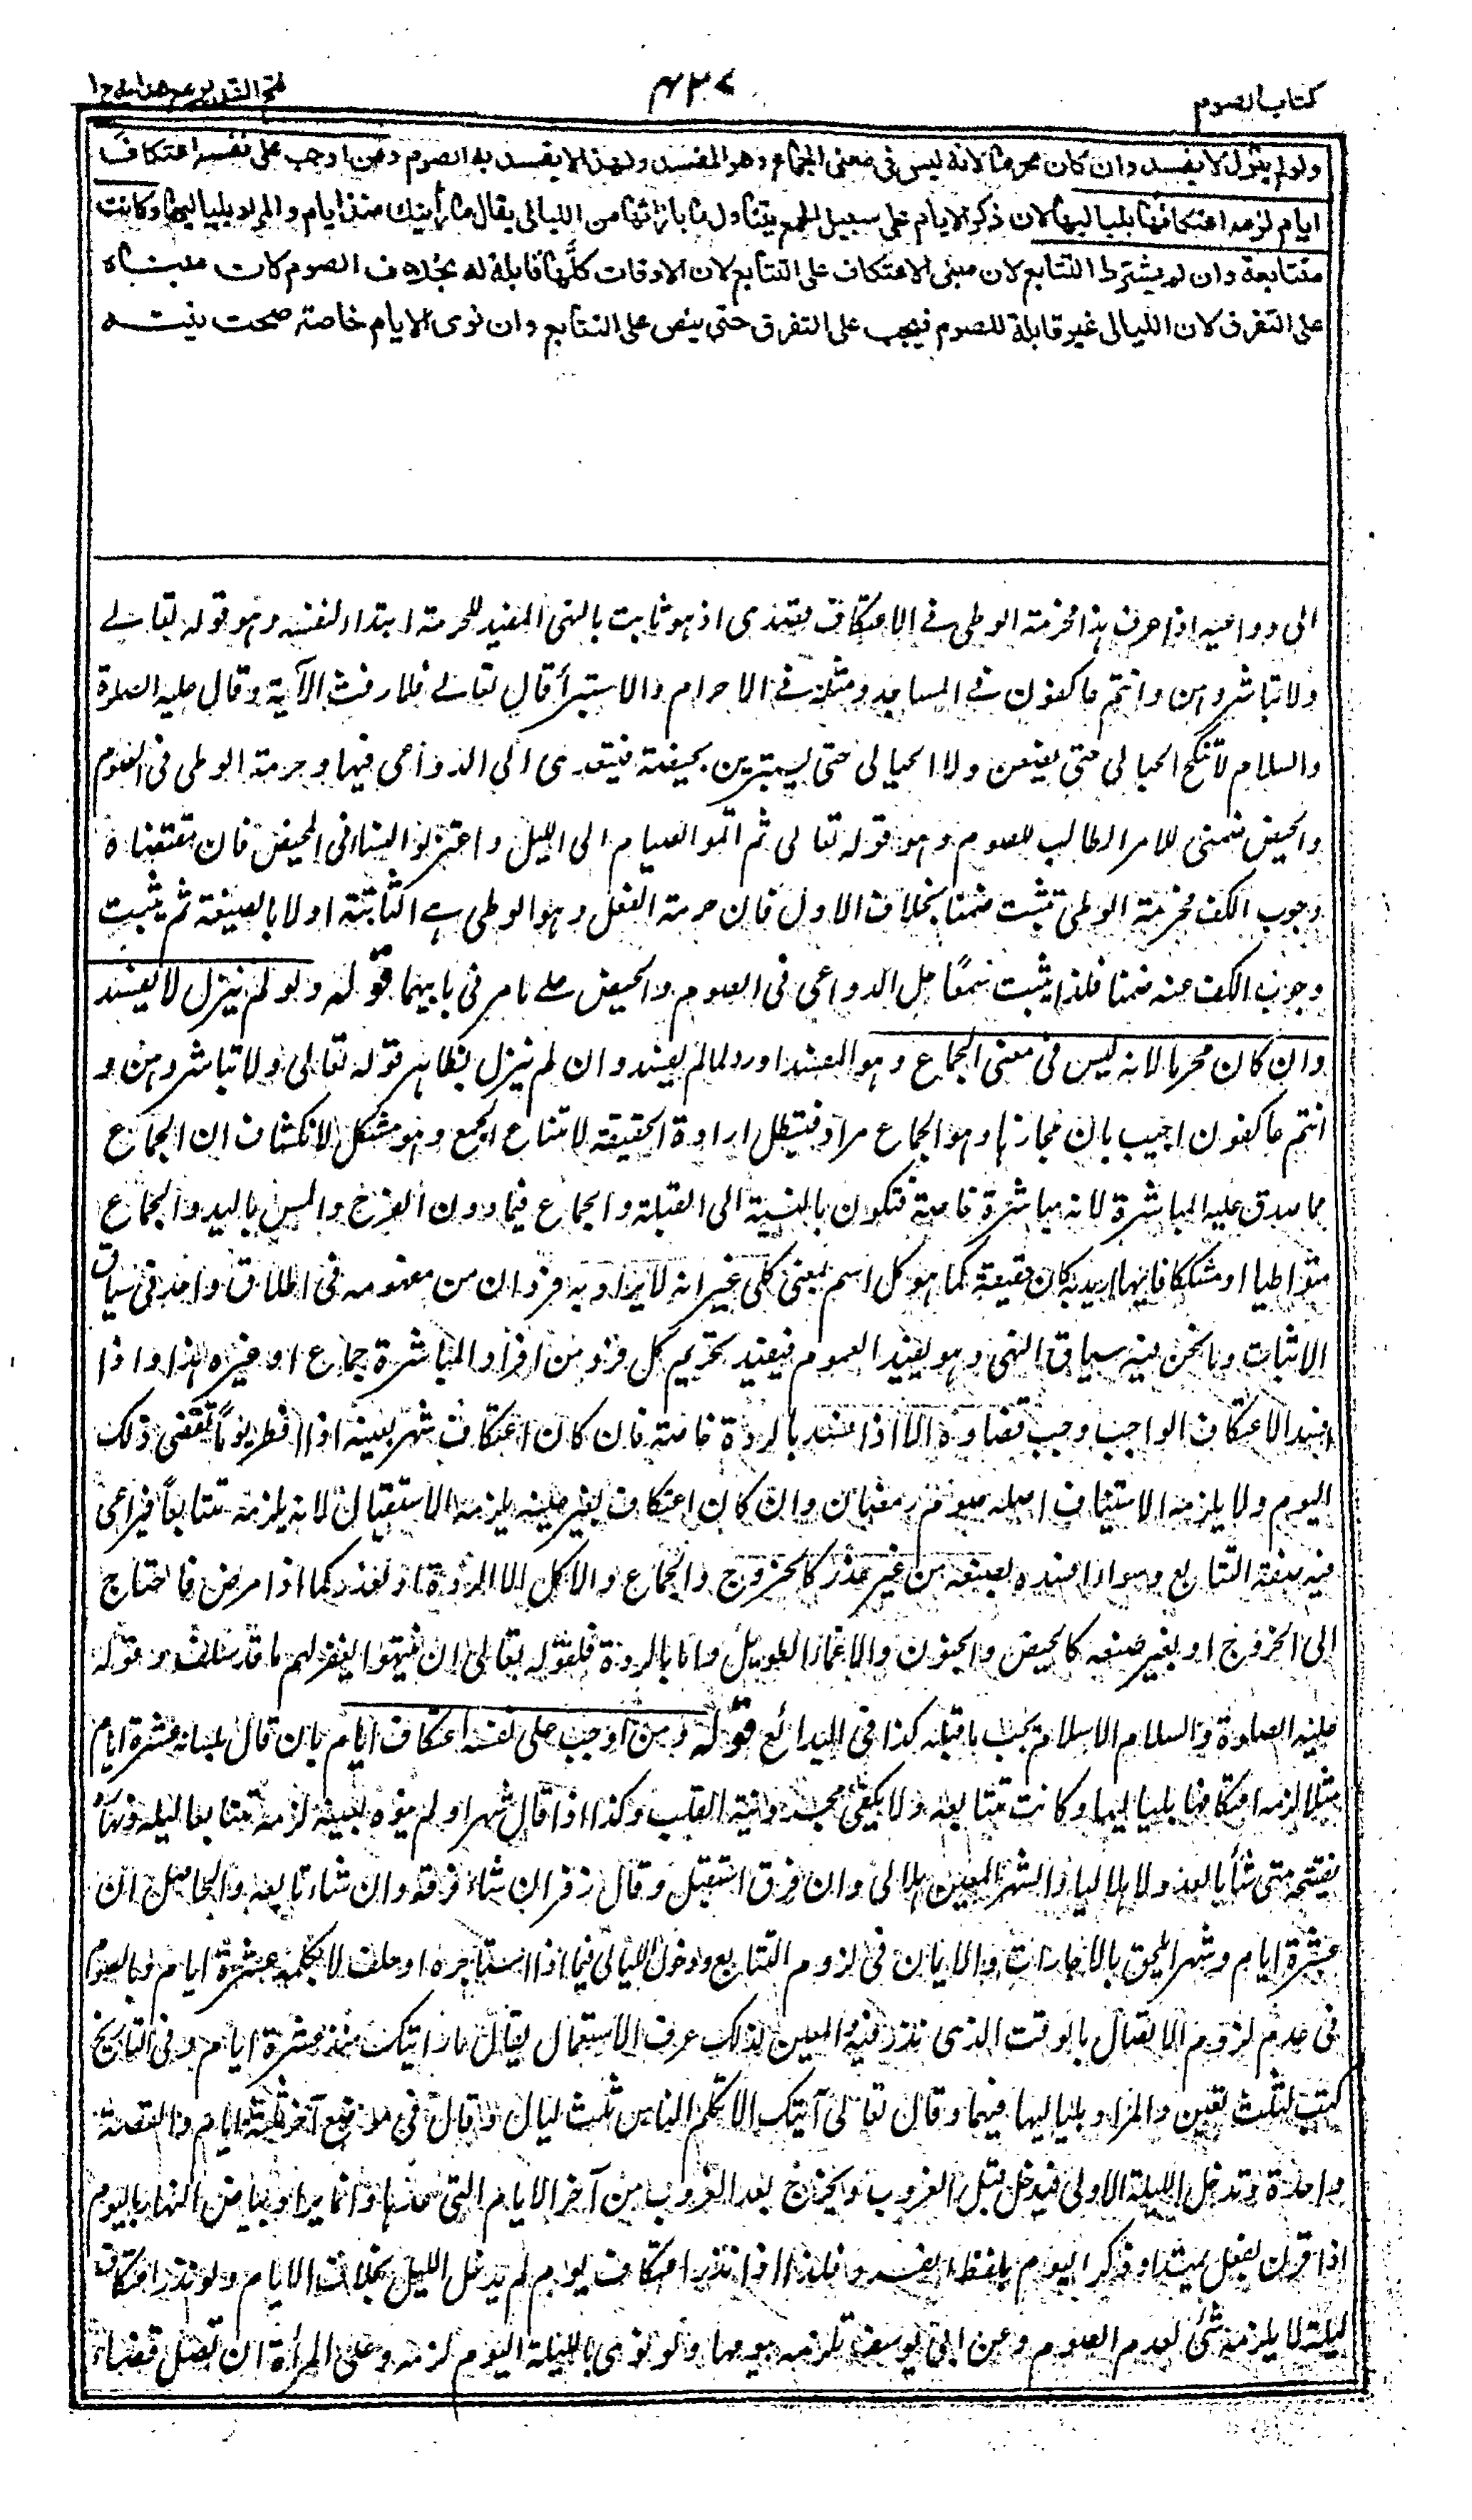 كتاب الصوم
فتح القدير مع هدايه ج ١
ولو لم ينزل لا يفسد وان كان محرما لانه ليس في معنى الجماع وهو المفسد ولهذا لا يفسد به الصوم ومن اوجب على نفسه اعتكاف
ايام لزمه اعتكافها بلياليها لان ذكر الايام على سبيل الجمع يتناول ما بازائها من الليالى يقال ما رأيتك منذ ايام والمراد بلياليها وكانت
متتابعة وان لم يشترط التتابع لان مبنى الاعتكاف على التتابع لان الاوقات كلها قابلة له بخلاف الصوم لان مبناه
على التفرق لان الليالى غير قابلة للصوم فيجب على التفرق حتى ينص على التتابع وان نوى الايام خاصة صحت نيته
الى دواعيه اذا عرف هذا فحرمة الوطى فى الاعتكاف يتعدى اذ هو ثابت بالنهى المفيد للحرمة ابتداء لنفسه وهو قوله تعالے
ولا تباشروهن وانتم عاكفون فے المساجد ومثله فے الاحرام والاستبرأ قال تعالے فلا رفث الآية وقال عليه الصلوة
والسلام لا تنكح الحبالى حتى يضعن ولا الحيالى حتى يستبرين بحيضة فيتعدى الى الدواعى فيها وحرمة الوطى فى الصوم
والحيض ضمنى للامر الطالب للصوم وهو قوله تعالى ثم اتموا الصيام الى الليل واعتزلوا النساء فى المحيض فان مقتضاه
وجوب الكف فحرمة الوطى تثبت ضمنا بخلاف الاول فان حرمة الفعل وهو الوطى هے الثابتة اولا بالصيغة ثم يثبت
وجوب الكف عنه ضمنا فلذا يثبت سمعًا حل الدواعى فى الصوم والحيض على ما مر فى بابيهما قوله ولو لم ينزل لا يفسد
وان كان محرما لانه ليس فى معنى الجماع وهو المفسد اورد لما لم يفسد وان لم ينزل بظاهر قوله تعالى ولا تباشروهن و
انتم عاكفون اجيب بان مجازها وهو الجماع مراد فيبطل ارادة الحقيقة لامتناع الجمع وهو مشكل لانكشاف ان الجماع
مما صدق عليه المباشرة لانه مباشرة خاصة فتكون بالنسبة الى القبلة والجماع فيما دون الفرج والمس باليد والجماع
متواطيا او مشككا فايها اريد به كان حقيقة كما هو كل اسم لمعنى كلى غير انه لا يراد به فردان من مفهومه فى اطلاق واحد فى سياق
الاثبات وما نحن فيه سياق النهى وهو يفيد العموم فيفيد تحريم كل فرد من افراد المباشرة جماع او غيره هذا واذا
افسد الاعتكاف الواجب وجب قضاؤه الا اذا فسد بالردة خاصة فان كان اعتكاف شهر بعينه اذا افطر يومًا يقضى ذلك
اليوم ولا يلزمه الاستيناف اصله صوم رمضان وان كان اعتكاف بغير عينه يلزمه الاستقبال لانه يلزمه متتابعًا فيراعى
فيه صفة التتابع وسواء افسده بصنعه من غير عذر كالخروج والجماع والاكل الا الردة او لعذر كما اذا مرض فاحتاج
الى الخروج او بغير صنعه كالحيض والجنون والاغماء الطويل واما بالردة فلقوله تعالى ان ينتهوا يغفر لهم ما قد سلف وقوله
عليه الصلوة والسلام الاسلام يجب ما قبله كذا فى البدائع قوله ومن اوجب على نفسه اعتكاف ايام بان قال بلسانه عشرة ايام
مثلا لزمه اعتكافها بلياليها وكانت متتابعه ولا يكفى مجرد نية القلب وكذا اذا قال شهرا ولم ينوه بعينه لزمه متتابعا ليله ونهاره
يفتتحه متى شاء بالعدد ولا هلاليا والشهر المعين هلالى وان فرق استقبل وقال زفر ان شاء فرقه وان شاء تابعه والحاصل ان
عشرة ايام وشهرا يلحق بالاجارات والايمان فى لزوم التتابع ودخول الليالى فيما اذا استاجره او حلف لا يكلمه عشرة ايام وبالصوم
فى عدم لزوم الاتصال بالوقت الذى نذر فيه المعين لذلك عرف الاستعمال يقال ما رايتك منذ عشرة ايام وفى التاريخ
كتب لثلث بقين والمراد بلياليها فيهما وقال تعالى آيتك الا تكلم الناس ثلث ليال وقال فى موضع آخر ثلثة ايام والقصة
واحدة وتدخل الليلة الاولى فيدخل قبل الغروب ويخرج بعد الغروب من آخر الايام التى عدها وانما يراد بياض النهار باليوم
اذا قرن بفعل يمتد او ذكر اليوم بلفظ الفرد فلهذا اذا نذر اعتكاف يوم لم يدخل الليل بخلاف الايام ولو نذر اعتكاف
ليلة لا يلزمه شئ لعدم الصوم وعن ابى يوسف تلزمه بيومها ولو نوى بالليلة اليوم لزمه وعلى المرأة ان تصل قضاء